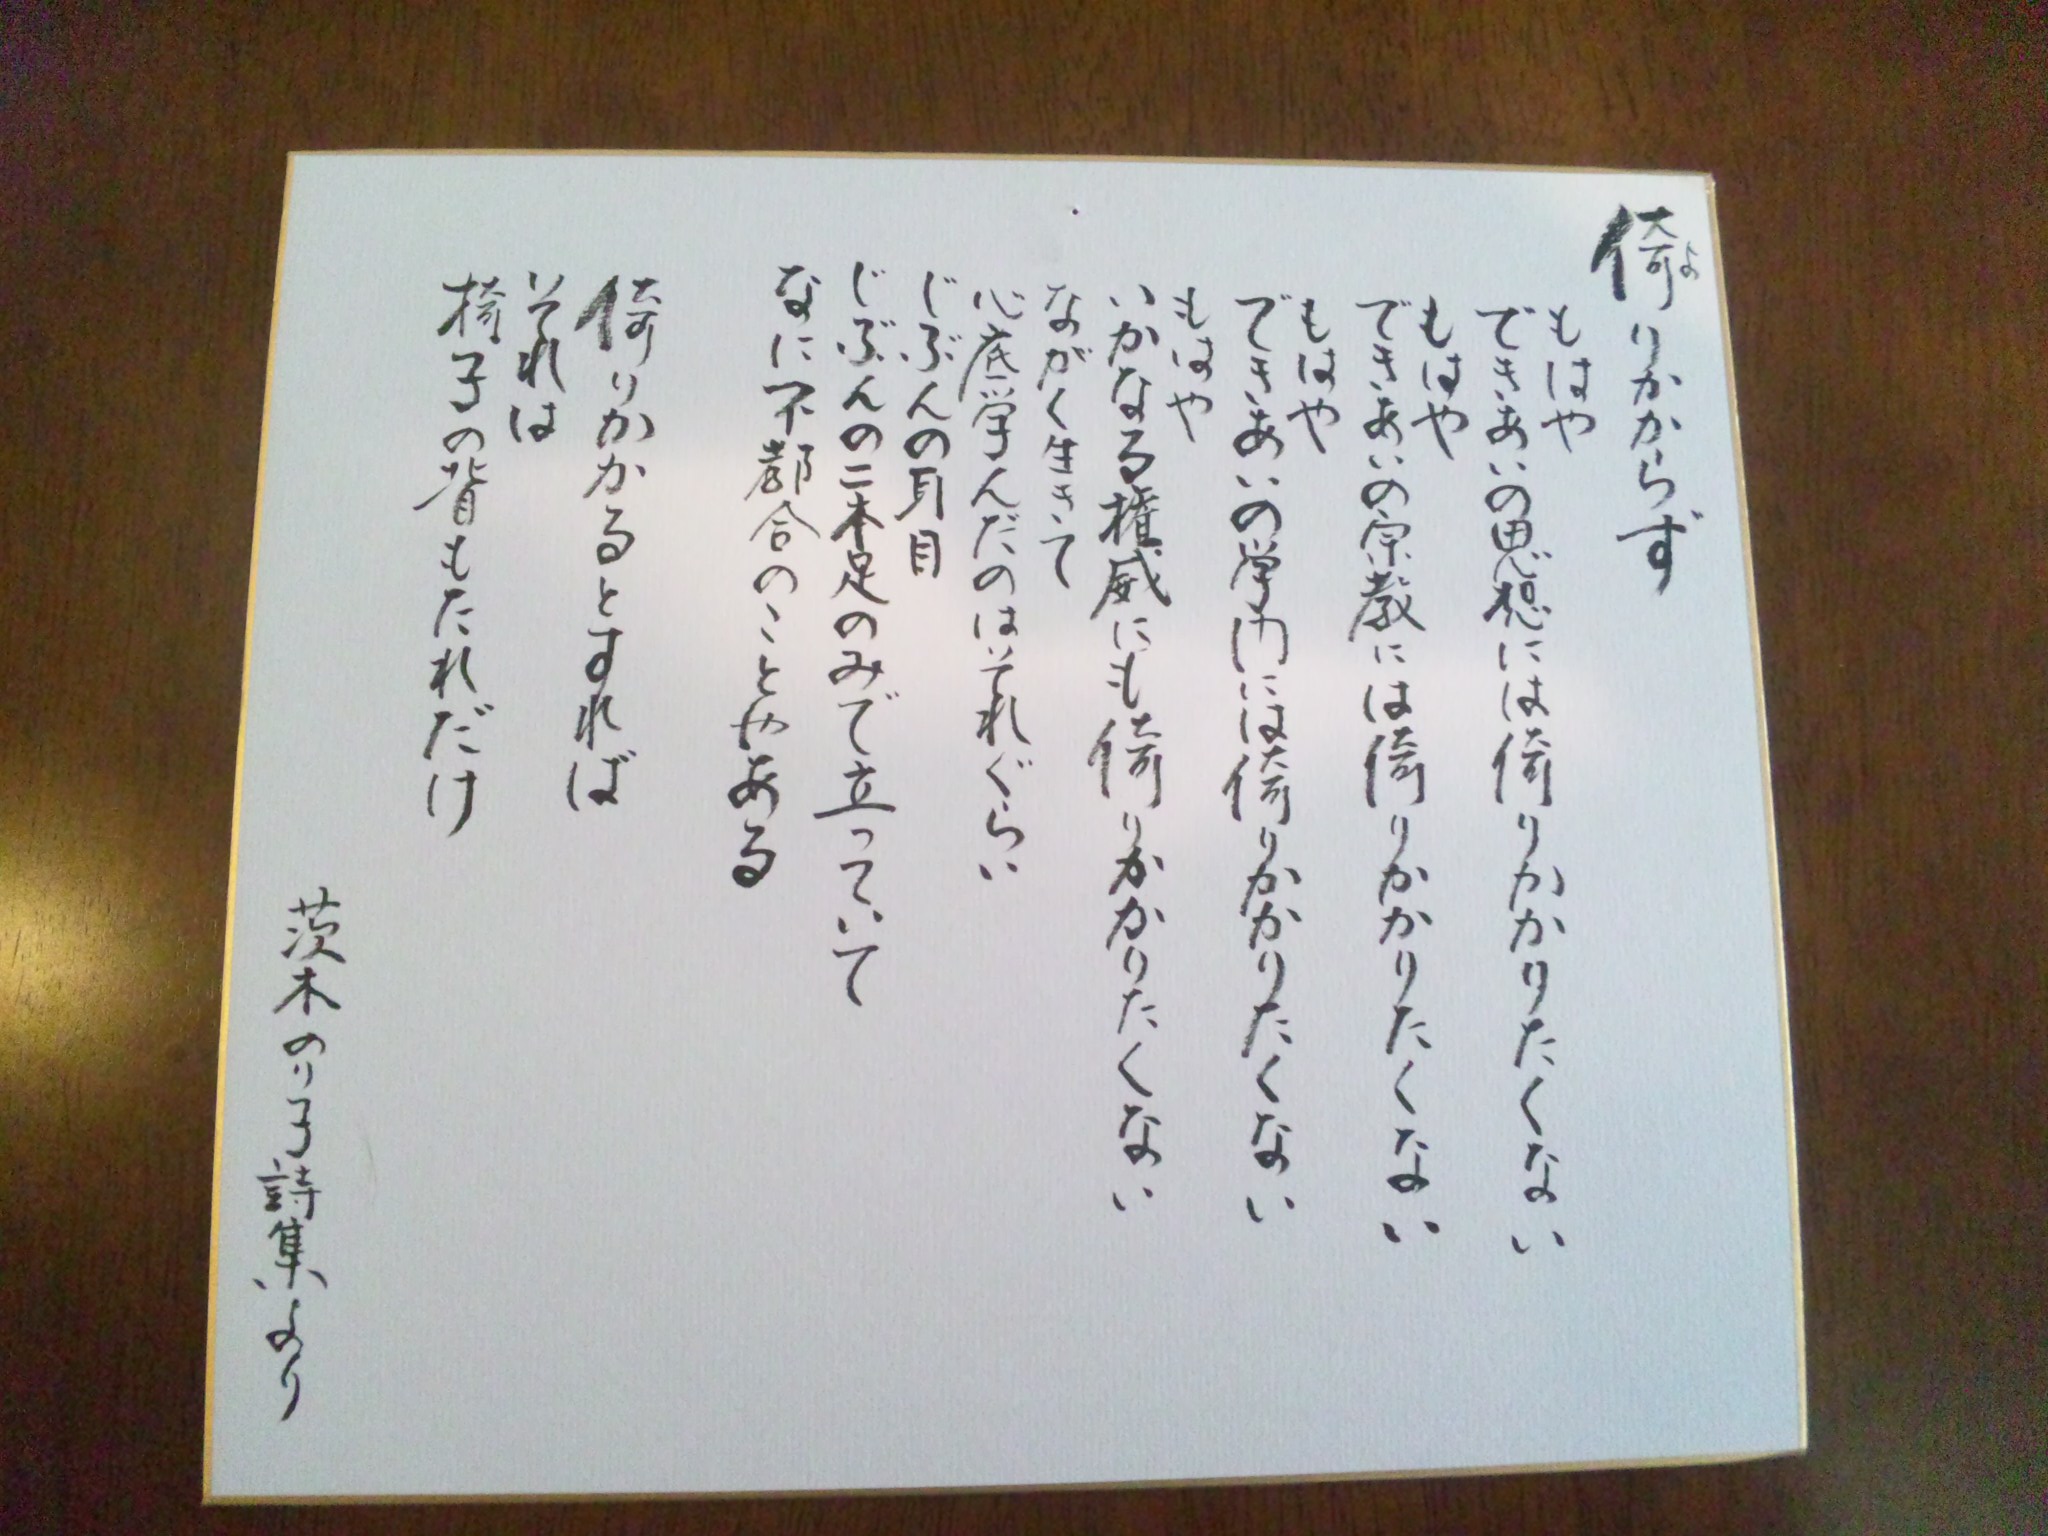 倚りかからず
よ
もはや
できあいの思想には倚りかかりたくない
もはや
できあいの宗教には倚りかかりたくない
もはや
できあいの学問には倚りかかりたくない
もはや
いかなる権威にも倚りかかりたくない
ながく生きて
心底学んだのはそれぐらい
じぶんの耳目
じぶんの二本足のみで立っていて
なに不都合のことやある
倚りかかるとすれば
それは
椅子の背もたれだけ
茨木のり子詩集より